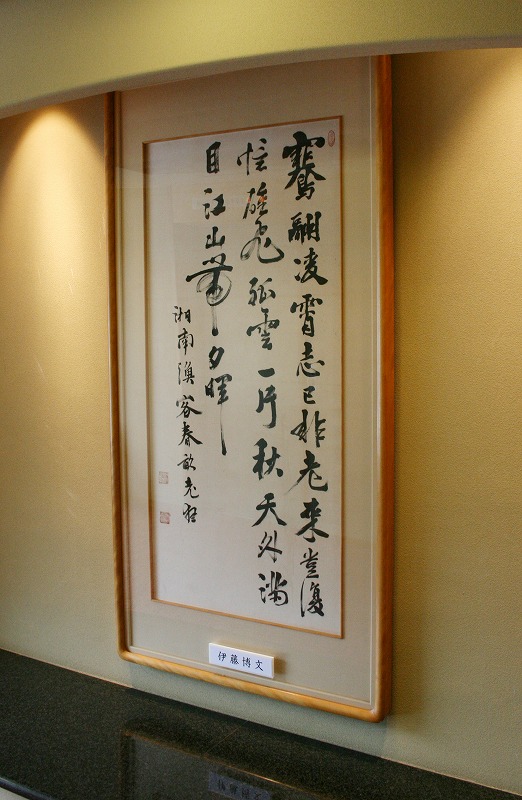 鶱翮凌霄志已非老来豈復
雄飛孤雲一片秋天外満
目江山帯夕暉
湘南漁客春畝老
伊藤博文